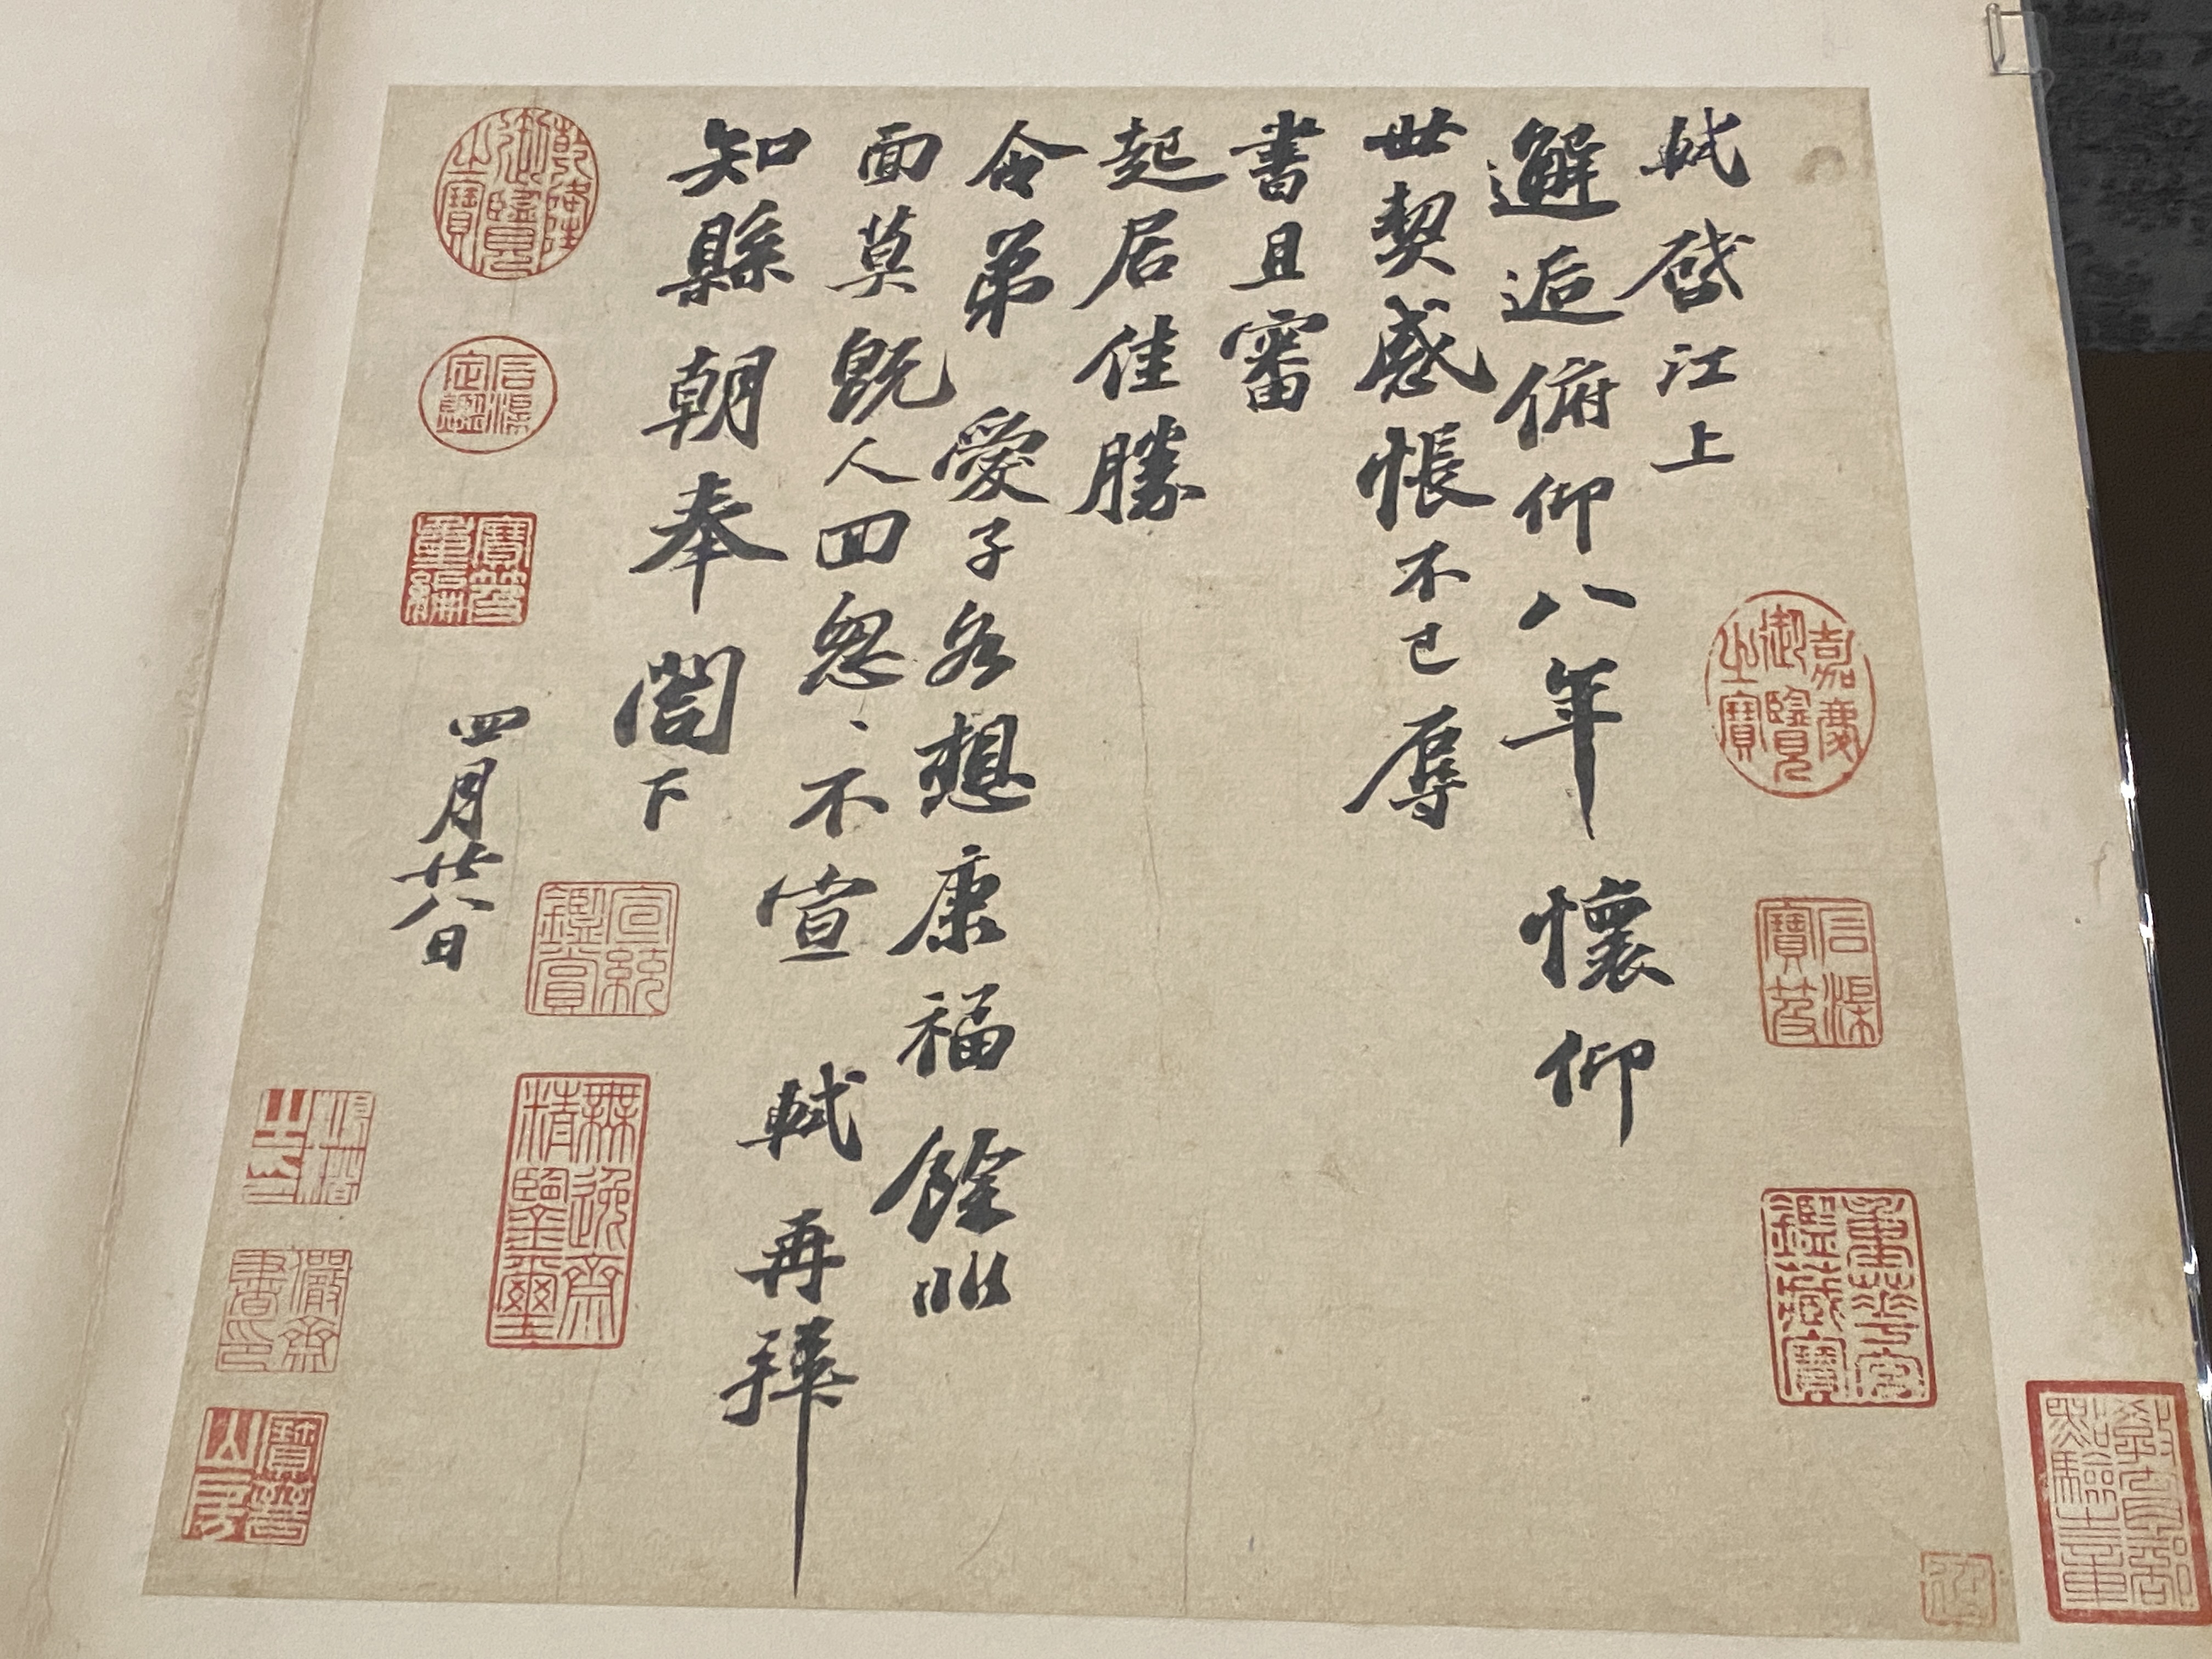 軾啓江上
邂逅俯仰八年懷仰
世契感悵不已辱
書且審
起居佳勝
令弟愛子各想康福餘非
面莫既人回怱〻不宣軾再拜
知縣朝奉閤下
四月廿八日
嘉慶御覽之寶
石渠寶笈
重華宮鑑藏寶
乾隆御覽之寶
石渠定鑑
寶笈重編
宣統鑑賞
無逸齋精鑒璽
儼齋書印